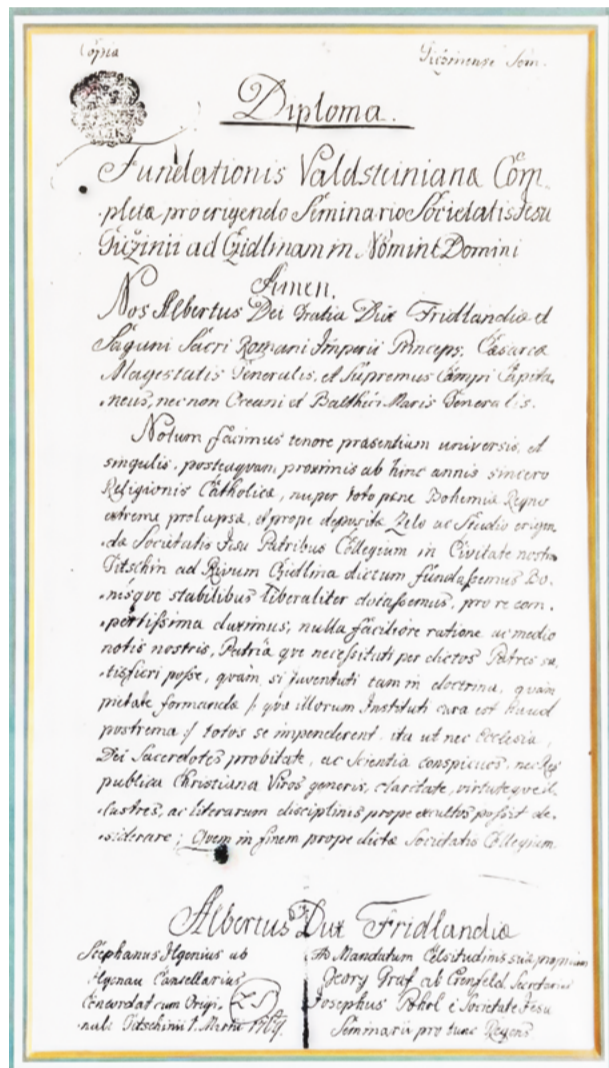 Copia
Giczinense Sem.
Diploma.
Fundationis Valdsteiniana Com-
pleta pro erigendo Seminario Societatis Jesu
Gižinii ad Czidlinam in Nomine Domini
Amen.
Nos Albertus Dei Gratia Dux Fridlandiæ et
Sagani Sacri Romani Imperii Princeps, Cæsareæ
Magestatis Generalis, et Supremus Campi Capita-
neus, nec non Oceani et Balthici Maris Generalis.
Notum facimus tenore præsentium universis, et
singulis, posteaquam proximis ab hinc annis sincero
Religionis Catholicæ, nuper toto pene Bohemiæ Regno
extreme prolapsæ, et prope deperditæ Zelo ac Studio erigen-
dæ Societatis Jesu Patribus Collegium in Civitate nostra
Titschin ad Rivum Czidlina dictum fundassemus Bo-
nisque stabilibus liberaliter dotassemus, pro re com-
pertissima duximus, nulla faciliore ratione ac medio
notis nostris, Patriæ que necessitati per dictos Patres sa-
tisfieri posse, quam si juventuti tam in doctrina, quam
pietate formandæ /: quæ illorum Instituti cura est haud
postrema :/ totos se impenderent, ita ut nec Ecclesia
Dei Sacerdotes probitate, ac Scientia conspicuos, nec Res
publica Christiana Viros generis, claritate, virtuteque il-
lustres, ac literarum disciplinis prope excultos possit de-
siderare; Quem in finem prope dictæ Societatis Collegium
Albertus Dux Fridlandiæ
Stephanus Ilgenius ab
Ilgenau Cancellarius
Concordat cum Origi-
nali Titschinii 1. Martii
L S
Ad Mandatum Celsitudinis suæ proprium
Georg Graf ab Erenfeld Secretarius
Josephus Pohol e Societate Jesu
Seminarii pro tunc Regens